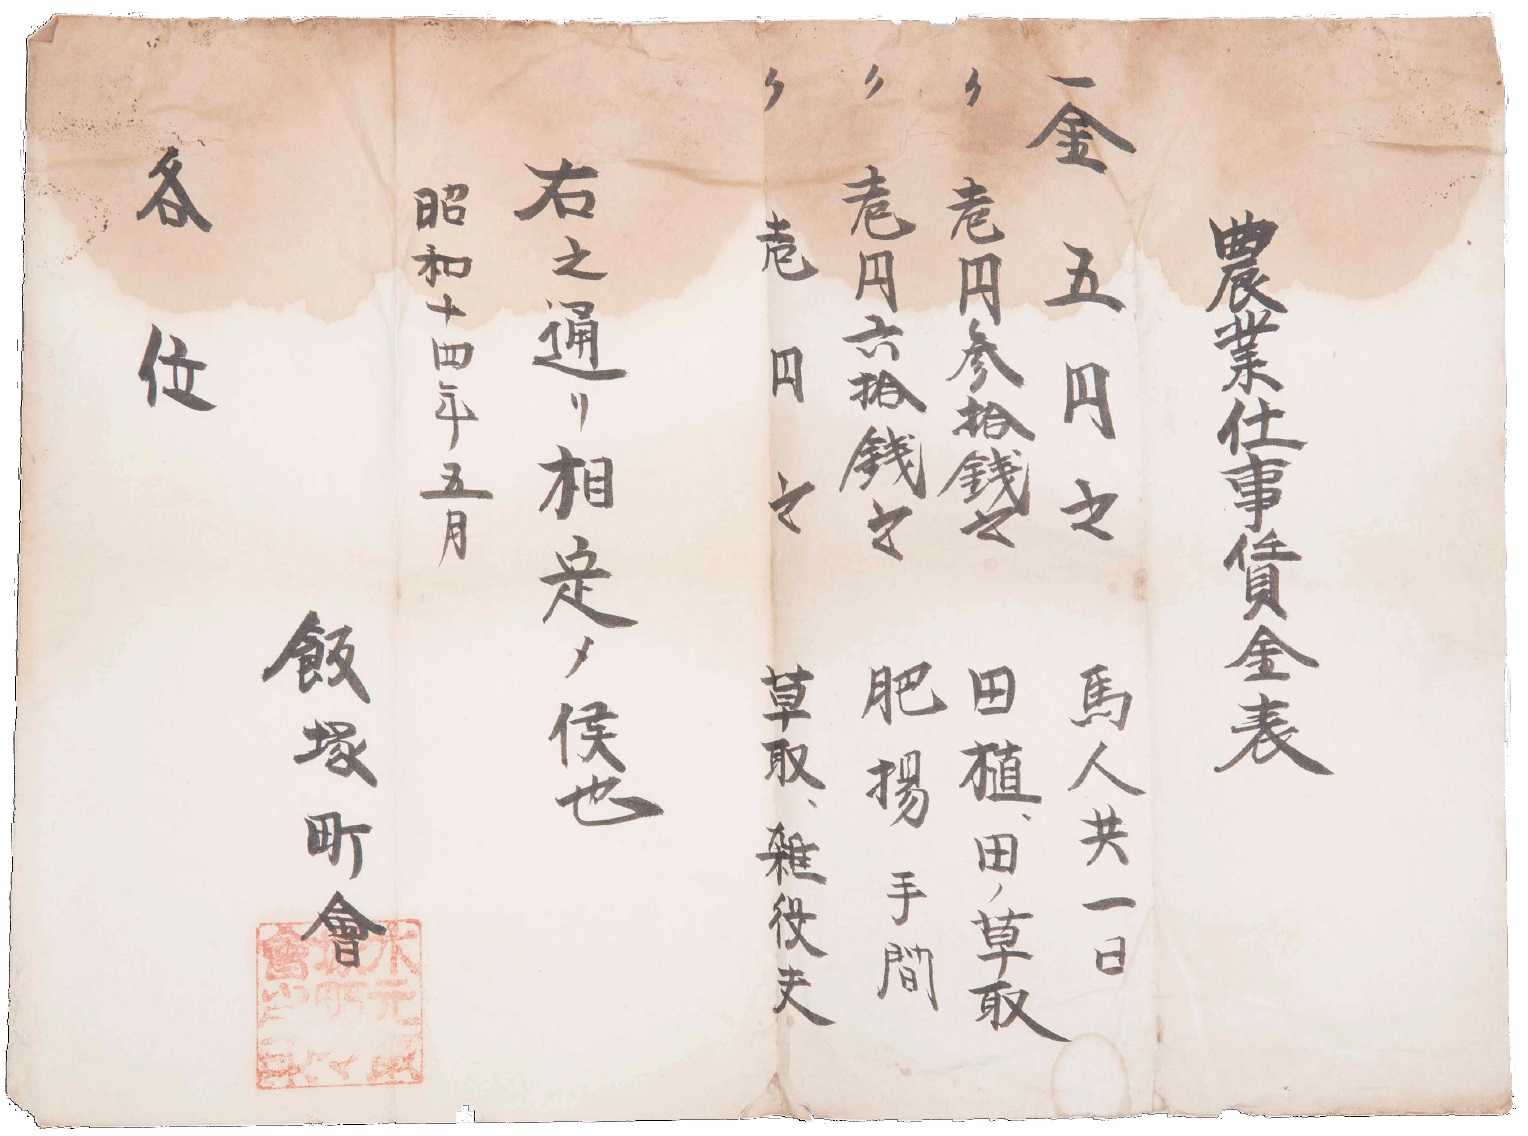 農業仕事賃金表
一金 五円也 馬人共一日
〃 壱円参拾銭也 田植、田ノ草取
〃 壱円六拾銭也 肥揚手間
〃 壱円也 草取、雑役夫
右之通リ相定メ候也
昭和十四年五月
飯塚町會
各位
水元飯
塚町
會之印